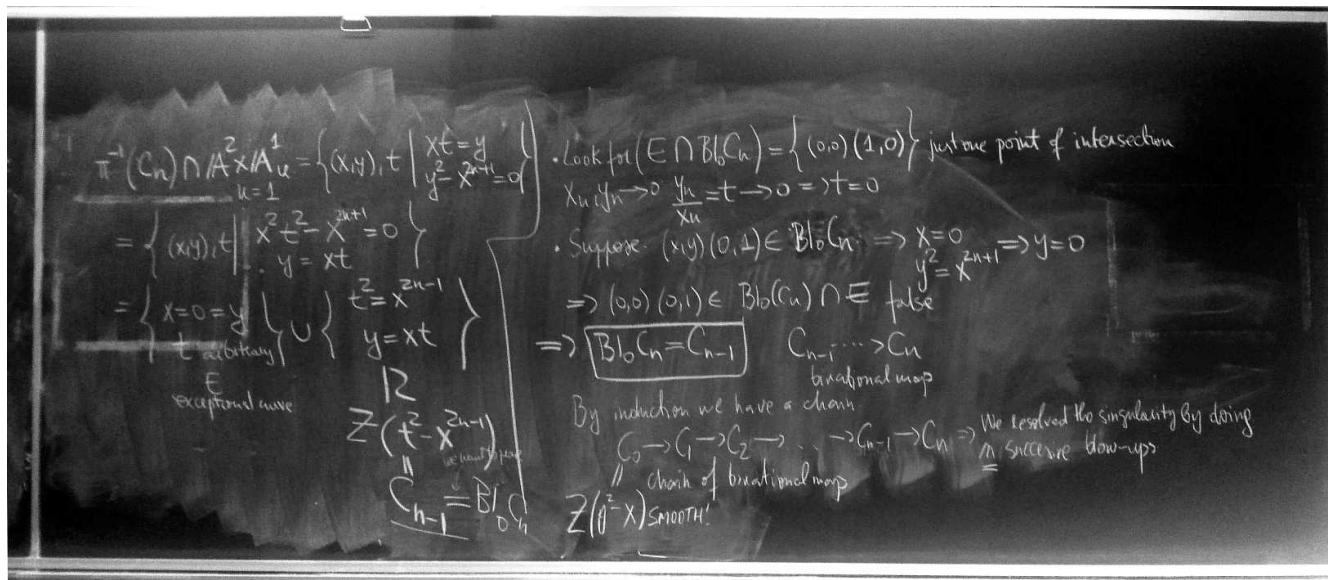 π⁻¹(Cₙ) ∩ A² × A¹ᵤ = {(x,y), t | xt = y
y² - x²ⁿ⁺¹ = 0}
u=1
= {(x,y), t | x²t² - x²ⁿ⁺¹ = 0
y = xt}
= {x=0=y
t arbitrary} ∪ {t² = x²ⁿ⁻¹
y = xt}
E
exceptional curve
Z(t² - x²ⁿ⁻¹)
we want to prove
Cₙ₋₁ = Bl₀Cₙ
• Look for (E ∩ Bl₀Cₙ) = {(0,0) (1,0)} just one point of intersection
xₙ, yₙ → 0 yₙ/xₙ = t → 0 ⇒ t = 0
• Suppose (x,y) (0,1) ∈ Bl₀Cₙ ⇒ x = 0
y² = x²ⁿ⁺¹ ⇒ y = 0
⇒ (0,0) (0,1) ∈ Bl₀(Cₙ) ∩ E false
⇒ Bl₀Cₙ = Cₙ₋₁ Cₙ₋₁ ⇢ Cₙ
birational map
By induction we have a chain
C₀ → C₁ → C₂ → ... → Cₙ₋₁ → Cₙ ⇒ We resolved the singularity by doing
n succesive blow-ups
chain of birational map
Z(y² - x) SMOOTH!